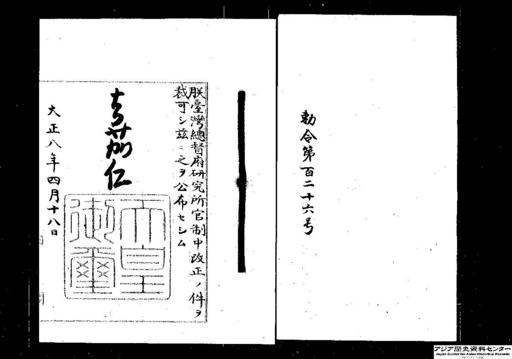 勅令第百二十六号
朕臺灣總督府研究所官制中改正ノ件ヲ
裁可シ茲ニ之ヲ公布セシム
嘉仁
大正八年四月十八日
天皇
御璽
アジア歴史資料センター
Japan Center for Asian Historical Records